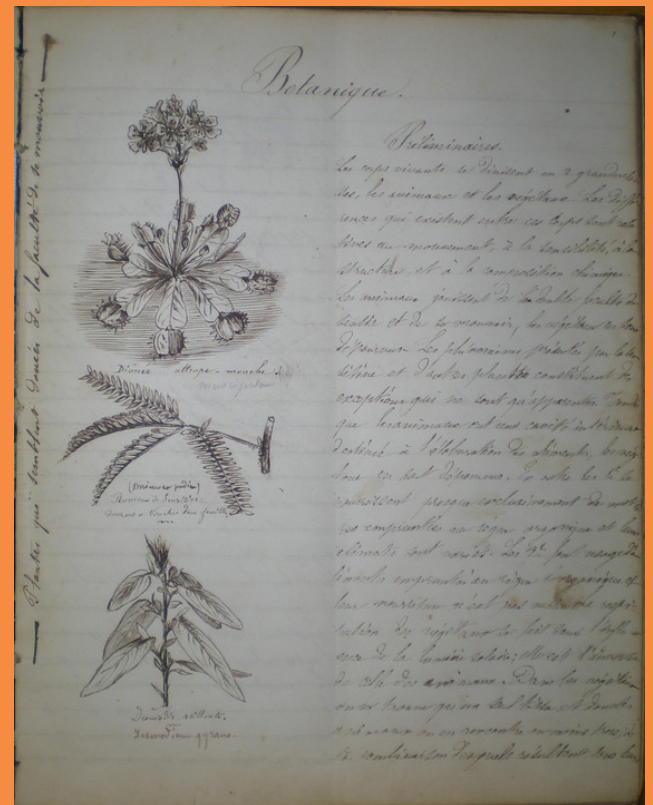 Botanique.
Plantes qui semblent douées de la faculté de se mouvoir
Dionée attrape-mouche
muscipula
(Mimosa pudica)
Rameau de Sensitive
feuille
oscillante.
Desmodium gyrans.
Préliminaires.
Les corps vivants se divisent en 2 grandes clas-
ses, les animaux et les végétaux. Les diffé-
rences qui existent entre ces corps sont rela-
tives au mouvement, à la sensibilité, à la
structure, et à la composition chimique.
Les animaux jouissent de la double faculté de
sentir et de se mouvoir, les végétaux en sont
dépourvus. Les phénomènes présentés par la sen-
sitive et d'autres plantes constituent des
exceptions qui ne sont qu'apparentes. Tandis
que les animaux ont une cavité intérieure
destinée à l'élaboration des aliments, les végé-
taux en sont dépourvus. En outre les
nourrissent presque exclusivement de mati-
ères empruntées au règne organique et leurs
aliments sont variés. Les font usage d'a-
liments empruntés au règne inorganique et
leur nourriture n'est pas La respi-
ration des végétaux se fait sous l'influ-
ence de la lumière solaire; elle est l'inverse
de celle des animaux. Dans les végétaux
on ne trouve qu'un seul tissu, et dans les
animaux on en rencontre au moins trois, de
la combinaison desquels résultent tous leurs